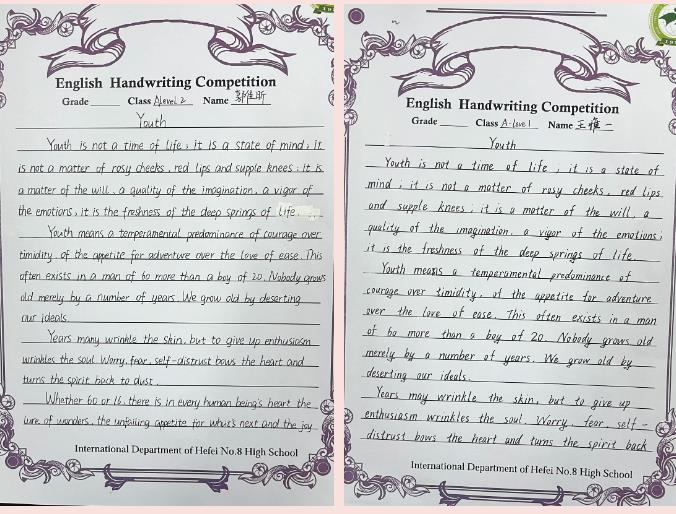 English Handwriting Competition
Grade Class Alevel 2 Name 郭佳昕
Youth
Youth is not a time of life ; it is a state of mind ; it
is not a matter of rosy cheeks , red lips and supple knees ; it is
a matter of the will , a quality of the imagination , a vigor of
the emotions , it is the freshness of the deep springs of life.
Youth means a temperamental predominance of courage over
timidity, of the appetite for adventure over the love of ease. This
often exists in a man of 60 more than a boy of 20. Nobody grows
old merely by a number of years. We grow old by deserting
our ideals.
Years many wrinkle the skin, but to give up enthusiasm
wrinkles the soul. Worry, fear, self-distrust bows the heart and
turns the spirit back to dust.
Whether 60 or 16, there is in every human being's heart the
lure of wonders, the unfailing appetite for what's next and the joy
International Department of Hefei No.8 High School
English Handwriting Competition
Grade Class A-level 1 Name 王雅一
Youth
Youth is not a time of life ; it is a state of
mind ; it is not a matter of rosy cheeks, red lips
and supple knees ; it is a matter of the will, a
quality of the imagination, a vigor of the emotions;
it is the freshness of the deep springs of life.
Youth means a temperamental predominance of
courage over timidity, of the appetite for adventure
over the love of ease. This often exists in a man
of 60 more than a boy of 20. Nobody grows old
merely by a number of years. We grow old by
deserting our ideals.
Years may wrinkle the skin, but to give up
enthusiasm wrinkles the soul. Worry, fear, self-
distrust bows the heart and turns the spirit back
International Department of Hefei No.8 High School